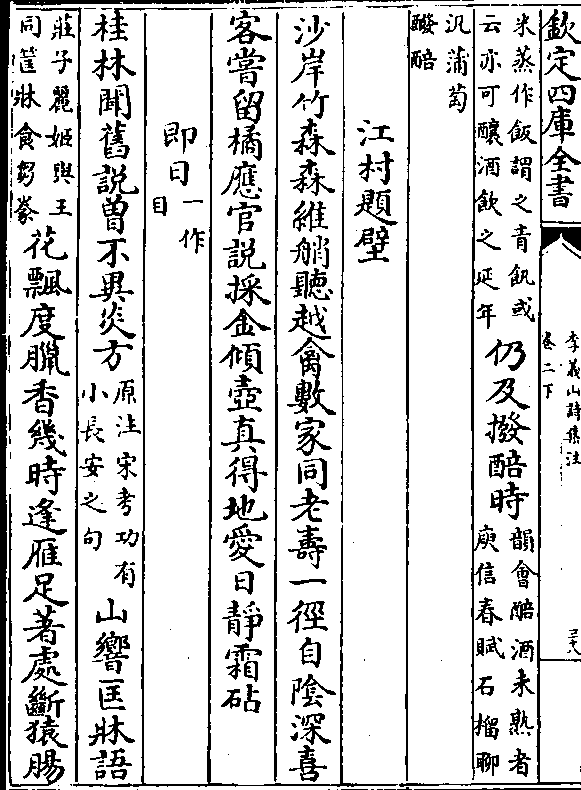 欽定四庫全書
李義山詩集注
卷二下
米蒸作飯謂之青飢或
云亦可釀酒飲之延年
仍及撥醅時
韻會醅酒未熟者
庾信春賦石榴聊
汎蒲萄
醱醅
江村題壁
沙岸竹森森維艄聽越禽數家同老壽一徑自陰深喜
客嘗留橘應官說採金傾壺真得地愛日靜霜砧
即日
一作
目
桂林聞舊說曽不異炎方
原注宋考功有
小長安之句
山響匡牀語
莊子麗姬與王
同筐牀食芻豢
花飄度臘香幾時逢雁足著處斷猿腸